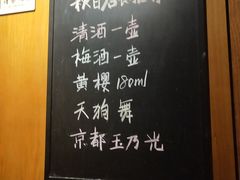 清酒一壶
梅酒一壶
黄樱180ml
天狗舞
京都玉乃光